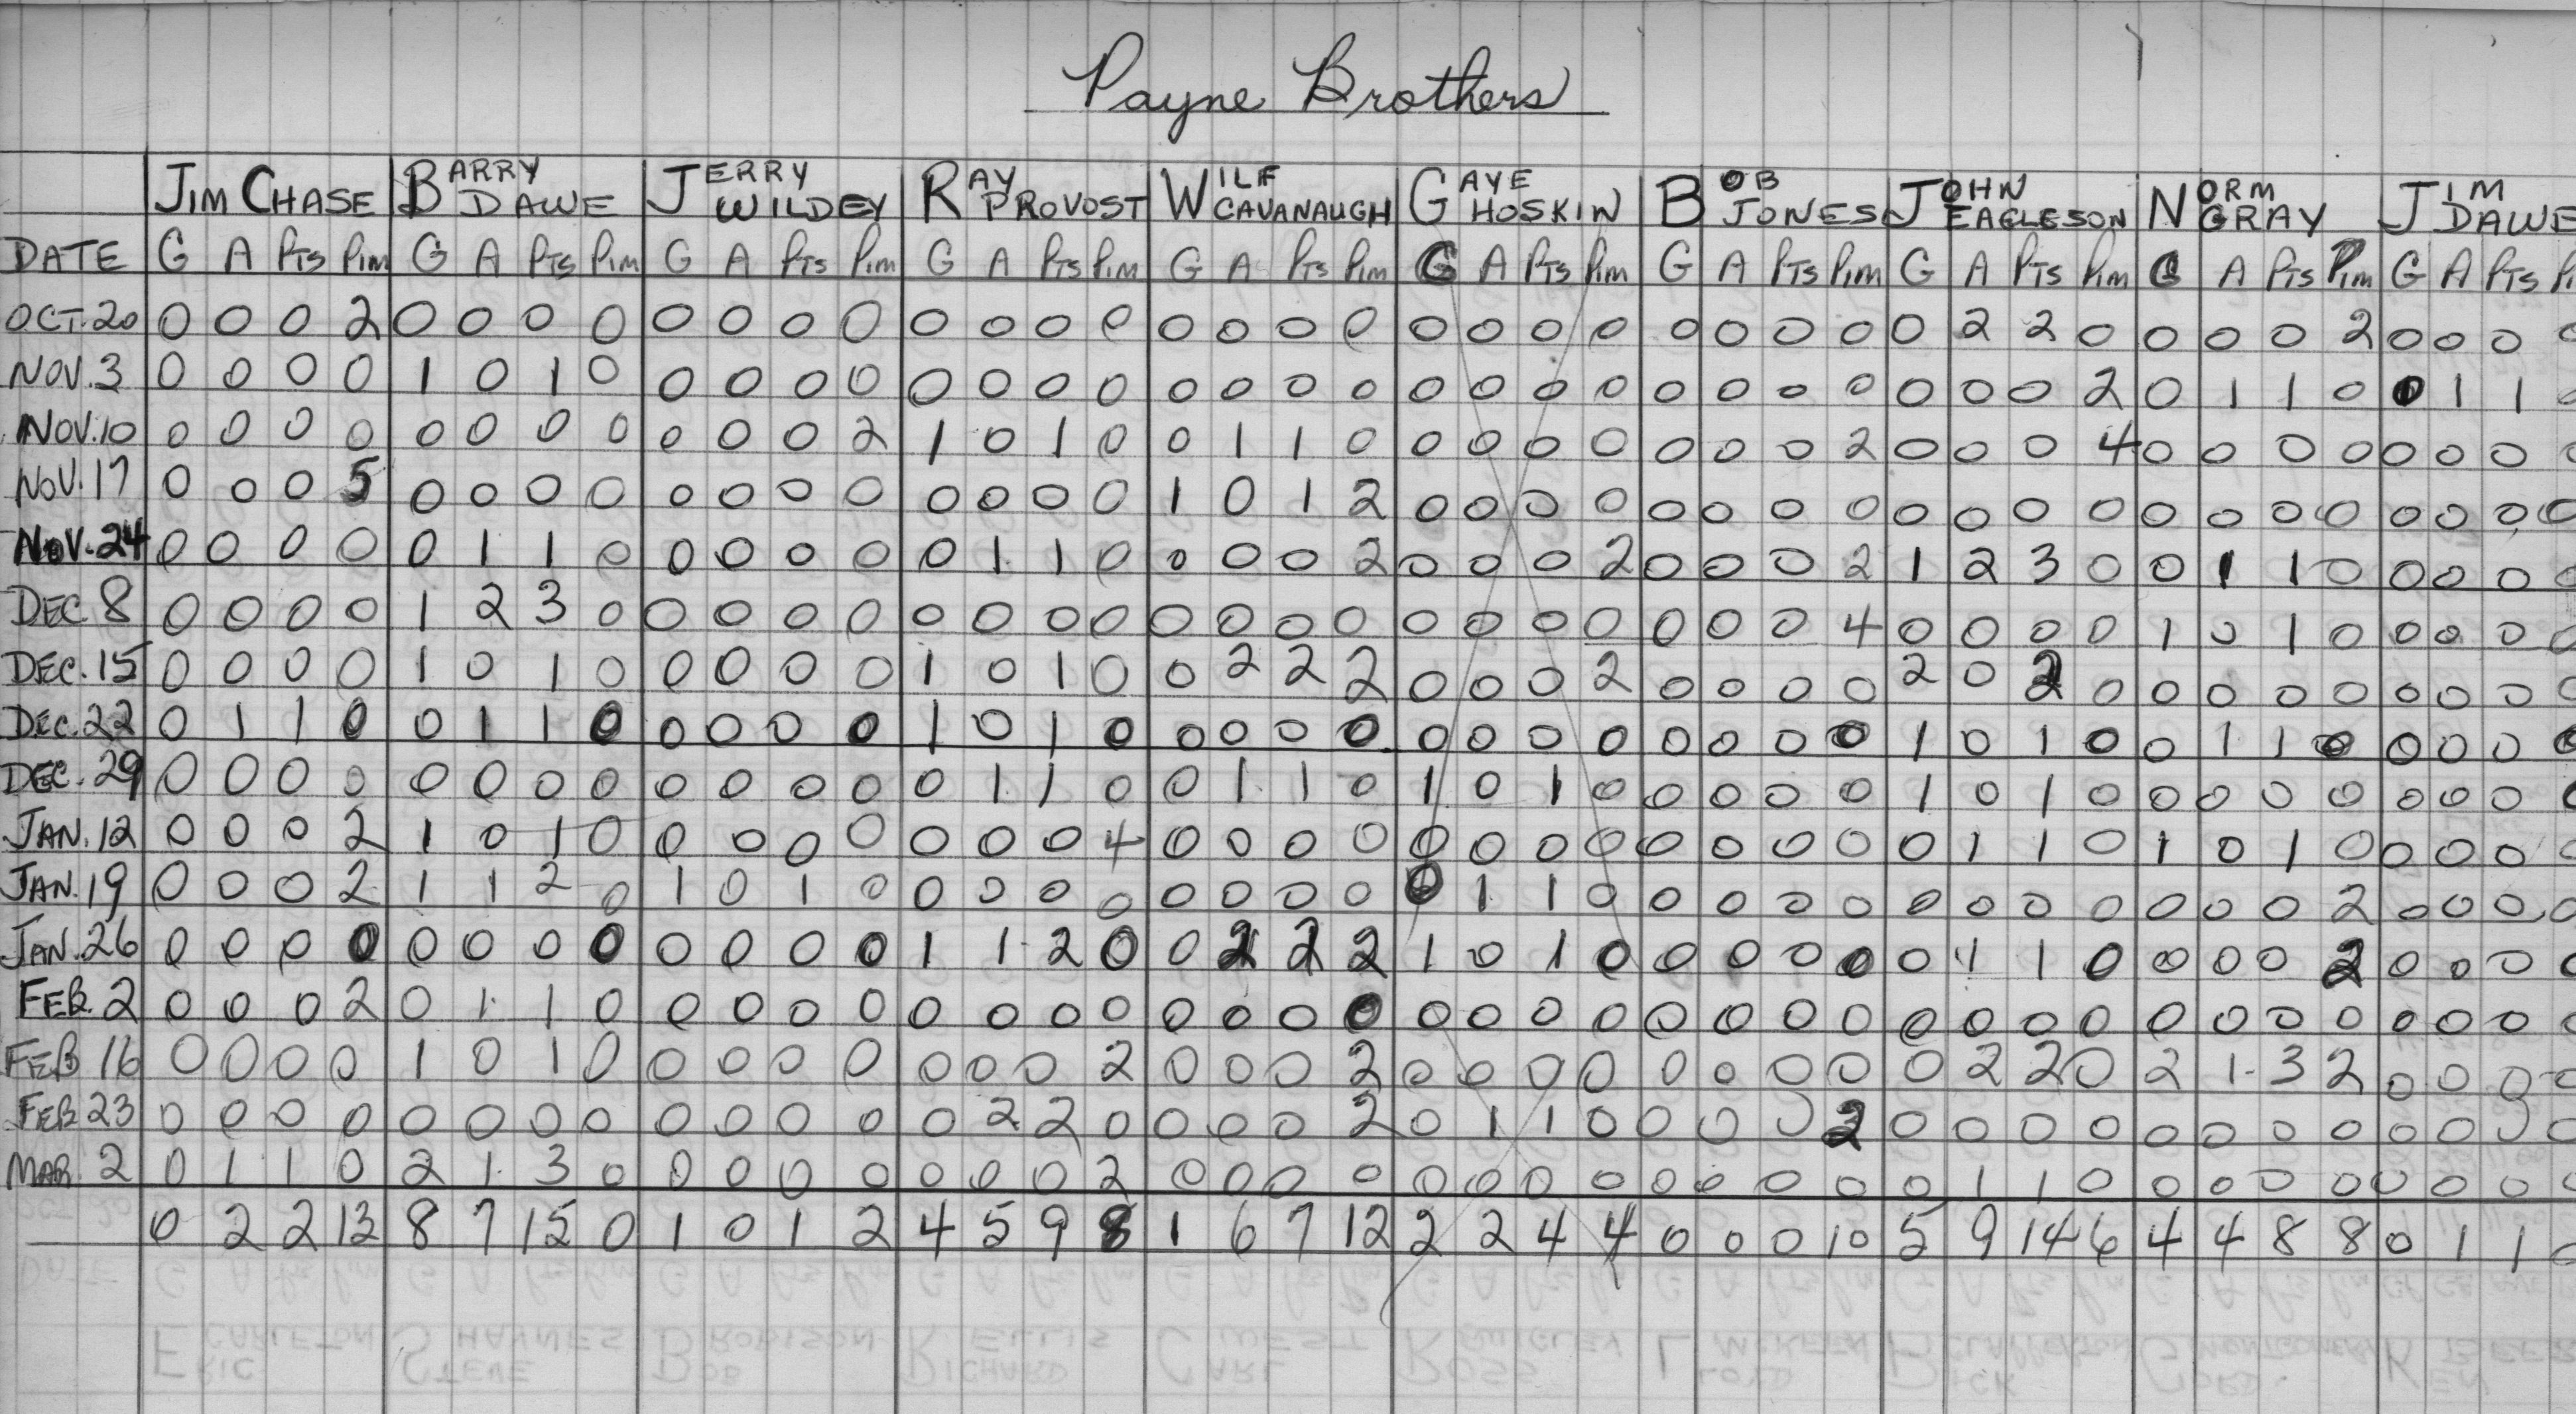 Payne Brothers
JIM CHASE BARRY DAWE JERRY WILDEY RAY PROVOST WILF CAVANAUGH GAYE HOSKIN BOB JONES JOHN EAGLESON NORM GRAY JIM DAWE
DATE G A PTS PIM G A PTS PIM G A PTS PIM G A PTS PIM G A PTS PIM G A PTS PIM G A PTS PIM G A PTS PIM G A PTS PIM G A PTS P
OCT. 20 0 0 0 2 0 0 0 0 0 0 0 0 0 0 0 0 0 0 0 0 0 0 0 0 0 0 0 0 0 2 2 0 0 0 0 2 0 0 0 0
NOV. 3 0 0 0 0 1 0 1 0 0 0 0 0 0 0 0 0 0 0 0 0 0 0 0 0 0 0 0 0 0 0 0 2 0 1 1 0 0 1 1 0
NOV. 10 0 0 0 0 0 0 0 0 0 0 0 2 1 0 1 0 0 1 1 0 0 0 0 0 0 0 0 2 0 0 0 4 0 0 0 0 0 0 0 0
NOV. 17 0 0 0 5 0 0 0 0 0 0 0 0 0 0 0 0 1 0 1 2 0 0 0 0 0 0 0 0 0 0 0 0 0 0 0 0 0 0 0 0
NOV. 24 0 0 0 0 0 1 1 0 0 0 0 0 0 1 1 0 0 0 0 2 0 0 0 2 0 0 0 2 1 2 3 0 0 1 1 0 0 0 0 0
DEC. 8 0 0 0 0 1 2 3 0 0 0 0 0 0 0 0 0 0 0 0 0 0 0 0 0 0 0 0 4 0 0 0 0 1 0 1 0 0 0 0 0
DEC. 15 0 0 0 0 1 0 1 0 0 0 0 0 1 0 1 0 0 2 2 2 0 0 0 2 0 0 0 0 2 0 2 0 0 0 0 0 0 0 0 0
DEC. 22 0 1 1 0 0 1 1 0 0 0 0 0 1 0 1 0 0 0 0 0 0 0 0 0 0 0 0 0 1 0 1 0 0 1 1 0 0 0 0 0
DEC. 29 0 0 0 0 0 0 0 0 0 0 0 0 0 1 1 0 0 1 1 0 1 0 1 0 0 0 0 0 1 0 1 0 0 0 0 0 0 0 0 0
JAN. 12 0 0 0 2 1 0 1 0 0 0 0 0 0 0 0 4 0 0 0 0 0 0 0 0 0 0 0 0 0 1 1 0 1 0 1 0 0 0 0 0
JAN. 19 0 0 0 2 1 1 2 0 1 0 1 0 0 0 0 0 0 0 0 0 0 1 1 0 0 0 0 0 0 0 0 0 0 0 0 2 0 0 0 0
JAN. 26 0 0 0 0 0 0 0 0 0 0 0 0 1 1 2 0 0 2 2 2 1 0 1 0 0 0 0 0 0 1 1 0 0 0 0 2 0 0 0 0
FEB. 2 0 0 0 2 0 1 1 0 0 0 0 0 0 0 0 0 0 0 0 0 0 0 0 0 0 0 0 0 0 0 0 0 0 0 0 0 0 0 0 0
FEB 16 0 0 0 0 1 0 1 0 0 0 0 0 0 0 0 2 0 0 0 2 0 0 0 0 0 0 0 0 0 2 2 0 2 1 3 2 0 0 0 0
FEB 23 0 0 0 0 0 0 0 0 0 0 0 0 0 2 2 0 0 0 0 2 0 1 1 0 0 0 0 2 0 0 0 0 0 0 0 0 0 0 0 0
MAR. 2 0 1 1 0 2 1 3 0 0 0 0 0 0 0 0 2 0 0 0 0 0 0 0 0 0 0 0 0 0 1 1 0 0 0 0 0 0 0 0 0
0 2 2 13 8 7 15 0 1 0 1 2 4 5 9 8 1 6 7 12 2 2 4 4 0 0 0 10 5 9 14 6 4 4 8 8 0 1 1 0